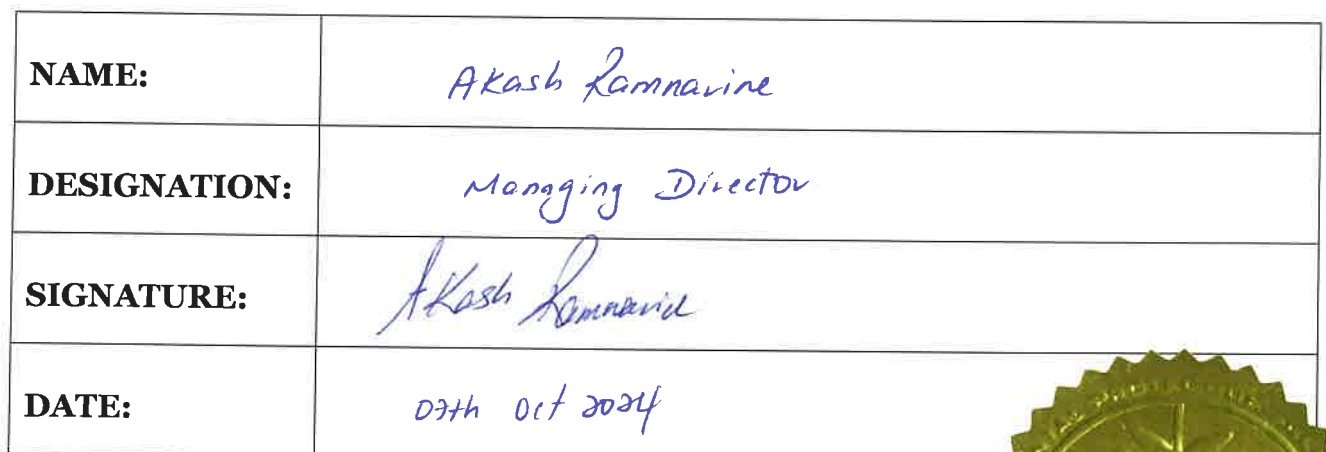 NAME: Akash Ramnarine
DESIGNATION: Managing Director
SIGNATURE: Akash Ramnarine
DATE: 07th Oct 2024